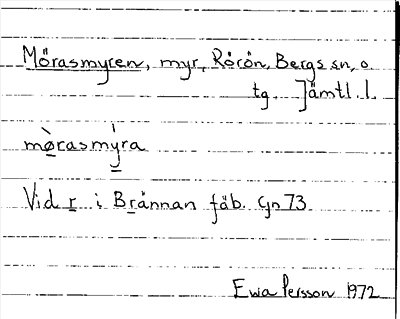 Mörasmyren, myr, Rörön, Bergs sn, o.
tg. Jämtl. l.
mø̀rasmýra
Vid r i Brännan fäb. Gn 73.
Ewa Persson 1972